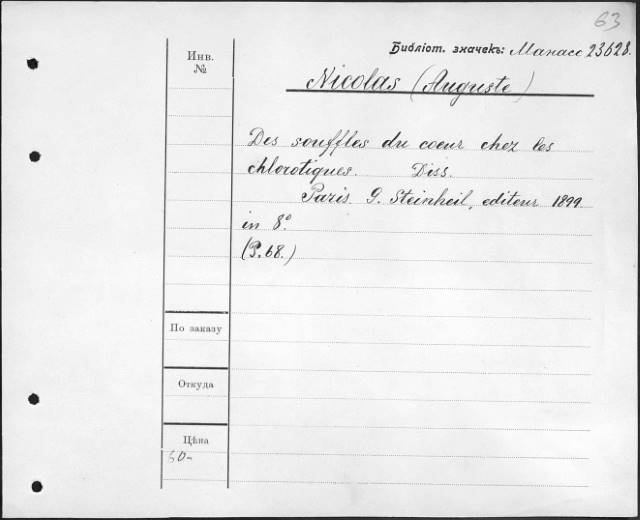 63
Библіот. значекъ: Манасс 23628.
Инв.
№
Nicolas (Auguste)
Des souffles du coeur chez les
chlorotiques. Diss.
Paris. G. Steinheil, editeur 1899
in 8°.
(P. 68.)
По заказу
Откуда
Цѣна
50-